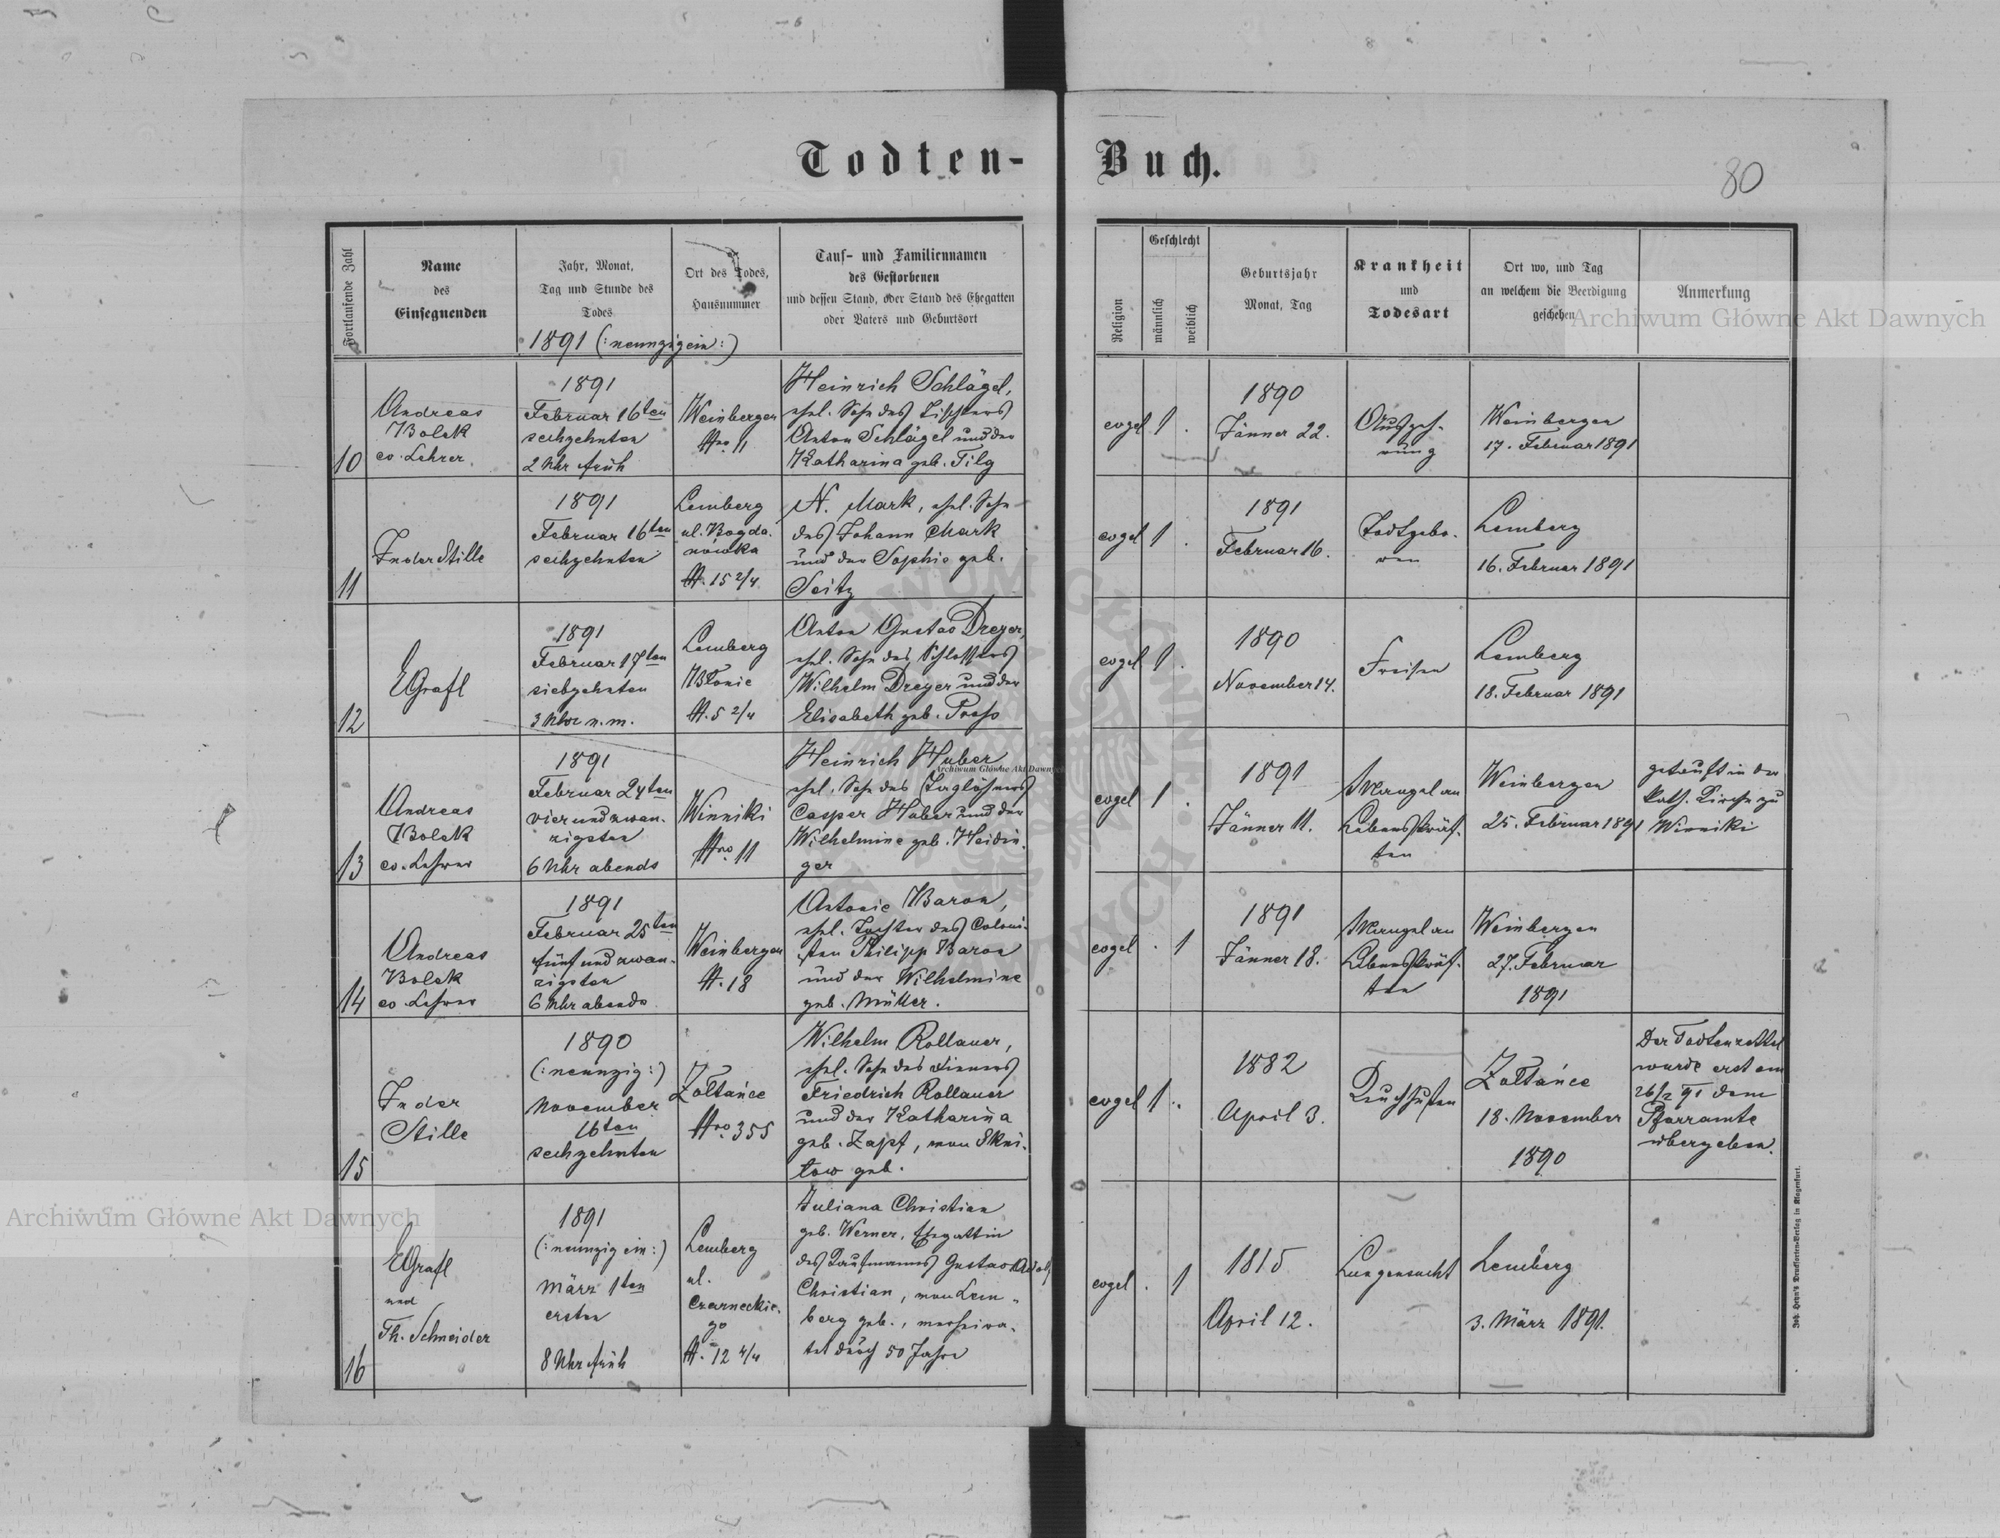 Todten-Buch.
80
Fortlaufende Zahl
Name
des
Einsegnenden
Jahr, Monat,
Tag und Stunde des
Todes
1891 (:neunzigein:)
Ort des Todes,
Hausnummer
Tauf- und Familiennamen
des Gestorbenen
und dessen Stand, oder Stand des Ehegatten
oder Vaters und Geburtsort
Religion
Geschlecht
männlich
weiblich
Geburtsjahr
Monat, Tag
Krankheit
und
Todesart
Ort wo, und Tag
an welchem die Beerdigung
geschehen
Anmerkung
Archiwum Główne Akt Dawnych
10
Andreas
Bolek
ev. Lehrer
1891
Februar 16ten
sechzehnten
2 Uhr früh
Weinbergen
Nro. 11
Heinrich Schlägel,
ehel. Sohn des Tischlers
Anton Schlägel und der
Katharina geb. Filg
evgel 1 .
1890
Jänner 22.
Auszeh-
rung
Weinbergen
17. Februar 1891
11
In der Stille
1891
Februar 16ten
sechzehnten
Lemberg
ul. Bogda-
nowka
N. 15 2/4
N. Mark, ehel. Sohn
des Johann Mark
und der Sophie geb.
Seitz
evgel 1 .
1891
Februar 16.
Todtgebo-
ren
Lemberg
16. Februar 1891
12
EGrafl
1891
Februar 17ten
siebzehnten
3 Uhr n. m.
Lemberg
Błonie
N. 5 2/4
Anton Gustav Dreyer,
ehel. Sohn des Schlossers
Wilhelm Dreyer und der
Elisabeth geb. Press
evgel 1 .
1890
November 14.
Freisen
Lemberg
18. Februar 1891
13
Andreas
Bolek
ev. Lehrer
1891
Februar 24ten
vier und zwan-
zigsten
6 Uhr abends
Winniki
Nro 11
Heinrich Huber
ehel. Sohn des Taglöhners
Casper Huber und der
Wilhelmine geb. Heidin-
ger
evgel 1 .
1891
Jänner 11.
Mangel an
Lebenskräf-
ten
Weinbergen
25. Februar 1891
getauft in der
kath. Kirche zu
Winniki
Archiwum Główne Akt Dawnych
14
Andreas
Bolek
ev. Lehrer
1891
Februar 25ten
fünf und zwan-
zigsten
6 Uhr abends
Weinbergen
N. 18
Antonie Baron,
ehel. Tochter des Coloni-
sten Philipp Baron
und der Wilhelmine
geb. Müller.
evgel . 1
1891
Jänner 18.
Mangel an
Lebenskräf-
ten
Weinbergen
27. Februar
1891
15
In der
Stille
1890
(:neunzig:)
November
16ten
sechzehnten
Zołtańce
Nro 355
Wilhelm Rollauer,
ehel. Sohn des Dieners
Friedrich Rollauer
und der Katharina
geb. Zapf, von Skni-
low geb.
evgel 1 .
1882
April 3.
Keuchhusten
Zołtańce
18. November
1890
Der Todtenzettel
wurde erst am
26/2 91 dem
Pfarramte
übergeben.
16
EGrafl
und
Th. Schneider
1891
(:neunzig ein:)
März 1ten
ersten
8 Uhr früh
Lemberg
ul.
Czarneckie-
go
N. 12 4/4
Juliana Christian
geb. Werner, Ehegattin
des Kaufmanns Gustav Adolf
Christian, von Lem-
berg geb., verheira-
tet durch 50 Jahre
evgel . 1
1815
April 12.
Lungensucht
Lemberg
3. März 1891.
Joh. Heyn's Drucksorten-Verlag in Klagenfurt.
Archiwum Główne Akt Dawnych